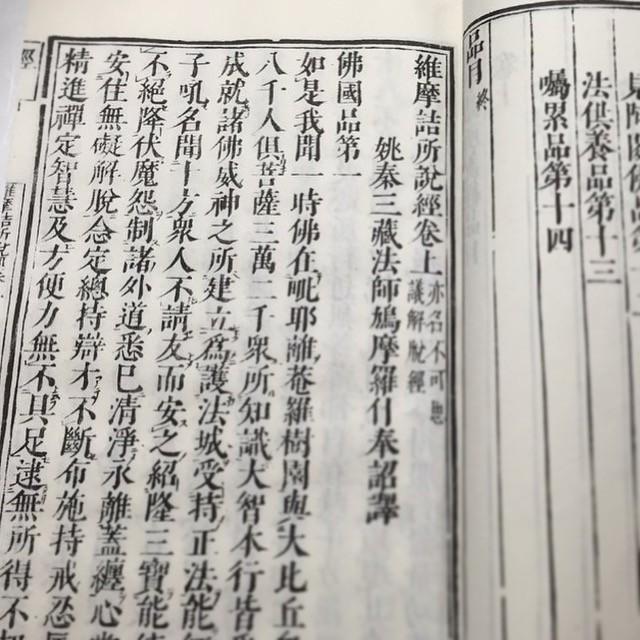 法供養品第十三
囑累品第十四
品目終
維摩詰所說經卷上
亦名不可思
議解脫經
姚秦三藏法師鳩摩羅什奉詔譯
佛國品第一
如是我聞一時佛在毗耶離菴羅樹園與大比丘
八千人俱菩薩三萬二千衆所知識大智本行皆
成就諸佛威神之所建立爲護法城受持正法能
子吼名聞十方衆人不請友而安之紹隆三寶能
不絕降伏魔怨制諸外道悉已清淨永離蓋纏心
安住無礙解脫念定總持辯才不斷布施持戒忍
精進禪定智慧及方便力無不具足逮無所得不
經